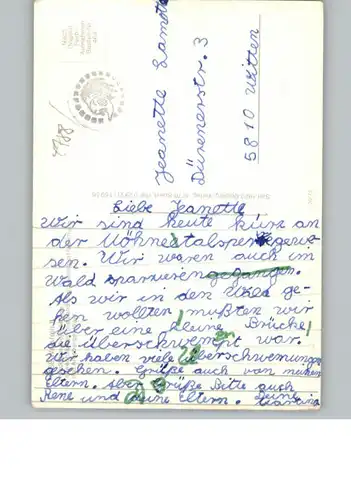 Jeanette
Dürenerstr. 3
5810 Witten
Liebe Jeanette
Wir sind heute kurz an
der Möhnetalsperre gewe-
sen. Wir waren auch im
Wald spazierengegangen.
Als wir in den Wald ge-
hen wollten, mußten wir
über eine kleine Brücke,
die überschwempt war.
Wir haben viele Überschwemungen
gesehen. Grüße auch von meinen
Eltern. Aber grüße Bitte auch
Rene und deine Eltern. Deine